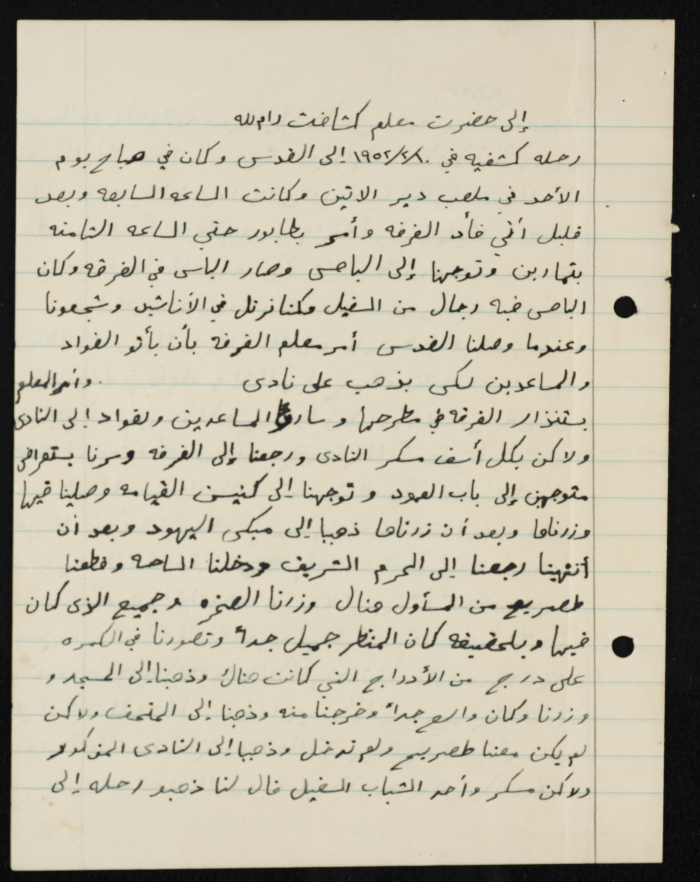 إلى حضرت معلم كشافت رام لله
رحله كشفيه في ١٩٥٢/٢/١٠ إلى القدس وكان في صباح يوم
الأحد في ملعب دير الاتين وكانت الساعه السابعه وبعد
قليل أتي قأد الفرقه وأمر بطابور حتي الساعه الثامنه
بتمارين وتوجهنا إلى الباص وصار الباس في الفرقه وكان
الباص فيه رجال من السفيل وكنا نرتل في الأناشيد وشجعونا
وعندما وصلنا القدس أمر معلم الفرقه بأن يأتو القواد
والمساعدين لكي يذهب على نادى وأمر المعلم
بنتذار الفرقه في مطرحها و سارو المساعدين والقواد إلى النادى
ولاكن بكل أسف مسكر النادى ورجعنا إلى الفرقه وسرنا بستعراض
متوجهين إلى باب العمود و توجهنا إلى كنيست القيامه وصلينا فيها
وزرناها وبعد أن زرناها ذهبنا إلى مبكى اليهود وبعد أن
أنتهينا رجعنا إلى الحرم الشريف ودخلنا الساحه وقطعنا
طصريح من المسأول هناك وزرنا الصخره وجميع الذى كان
فيها وبلحقيقه كان المنظر جميل جداً وتصورنا في الكمره
على درج من الأدراج التي كانت هناك وذهبنا إلى المسجد و
وزرنا وكان واسع جداً وخرجنا منه وذهبنا إلى المتحف ولاكن
لم يكن معنا طصريح ولم ندخل وذهبنا إلى النادى المذكور
ولاكن مسكر وأحد الشباب السفيل قال لنا ذهبو رحله إلى